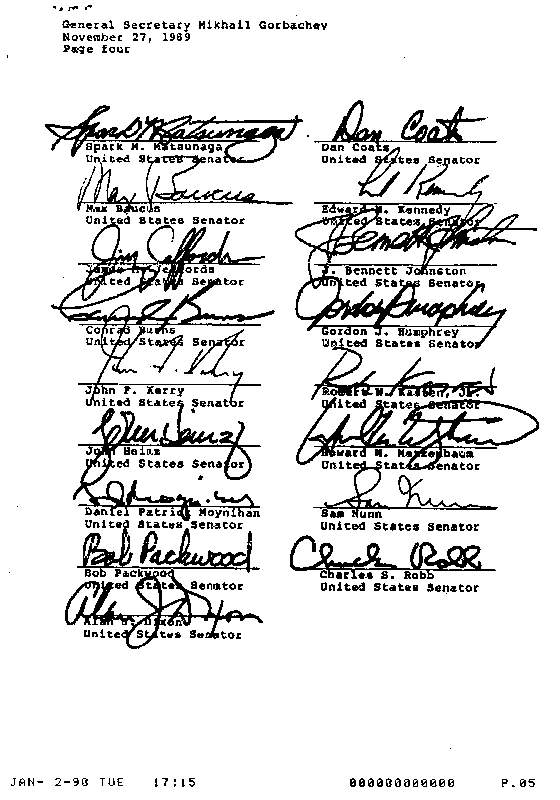 General Secretary Mikhail Gorbachev
November 27, 1989
Page four
Spark M. Matsunaga
Spark M. Matsunaga
United States Senator
Dan Coats
Dan Coats
United States Senator
Max Baucus
Max Baucus
United States Senator
Edward M. Kennedy
United States Senator
Jim Jeffords
James M. Jeffords
United States Senator
J. Bennett Johnston
United States Senator
Conrad Burns
United States Senator
Gordon Humphrey
Gordon J. Humphrey
United States Senator
John F. Kerry
John F. Kerry
United States Senator
Bob Kasten
Robert W. Kasten, Jr.
United States Senator
John Heinz
John Heinz
United States Senator
Howard M. Metzenbaum
United States Senator
Daniel Patrick Moynihan
United States Senator
Sam Nunn
Sam Nunn
United States Senator
Bob Packwood
Bob Packwood
United States Senator
Chuck Robb
Charles S. Robb
United States Senator
Alan J. Dixon
Alan J. Dixon
United States Senator
JAN- 2-90 TUE 17:15 000000000000 P.05